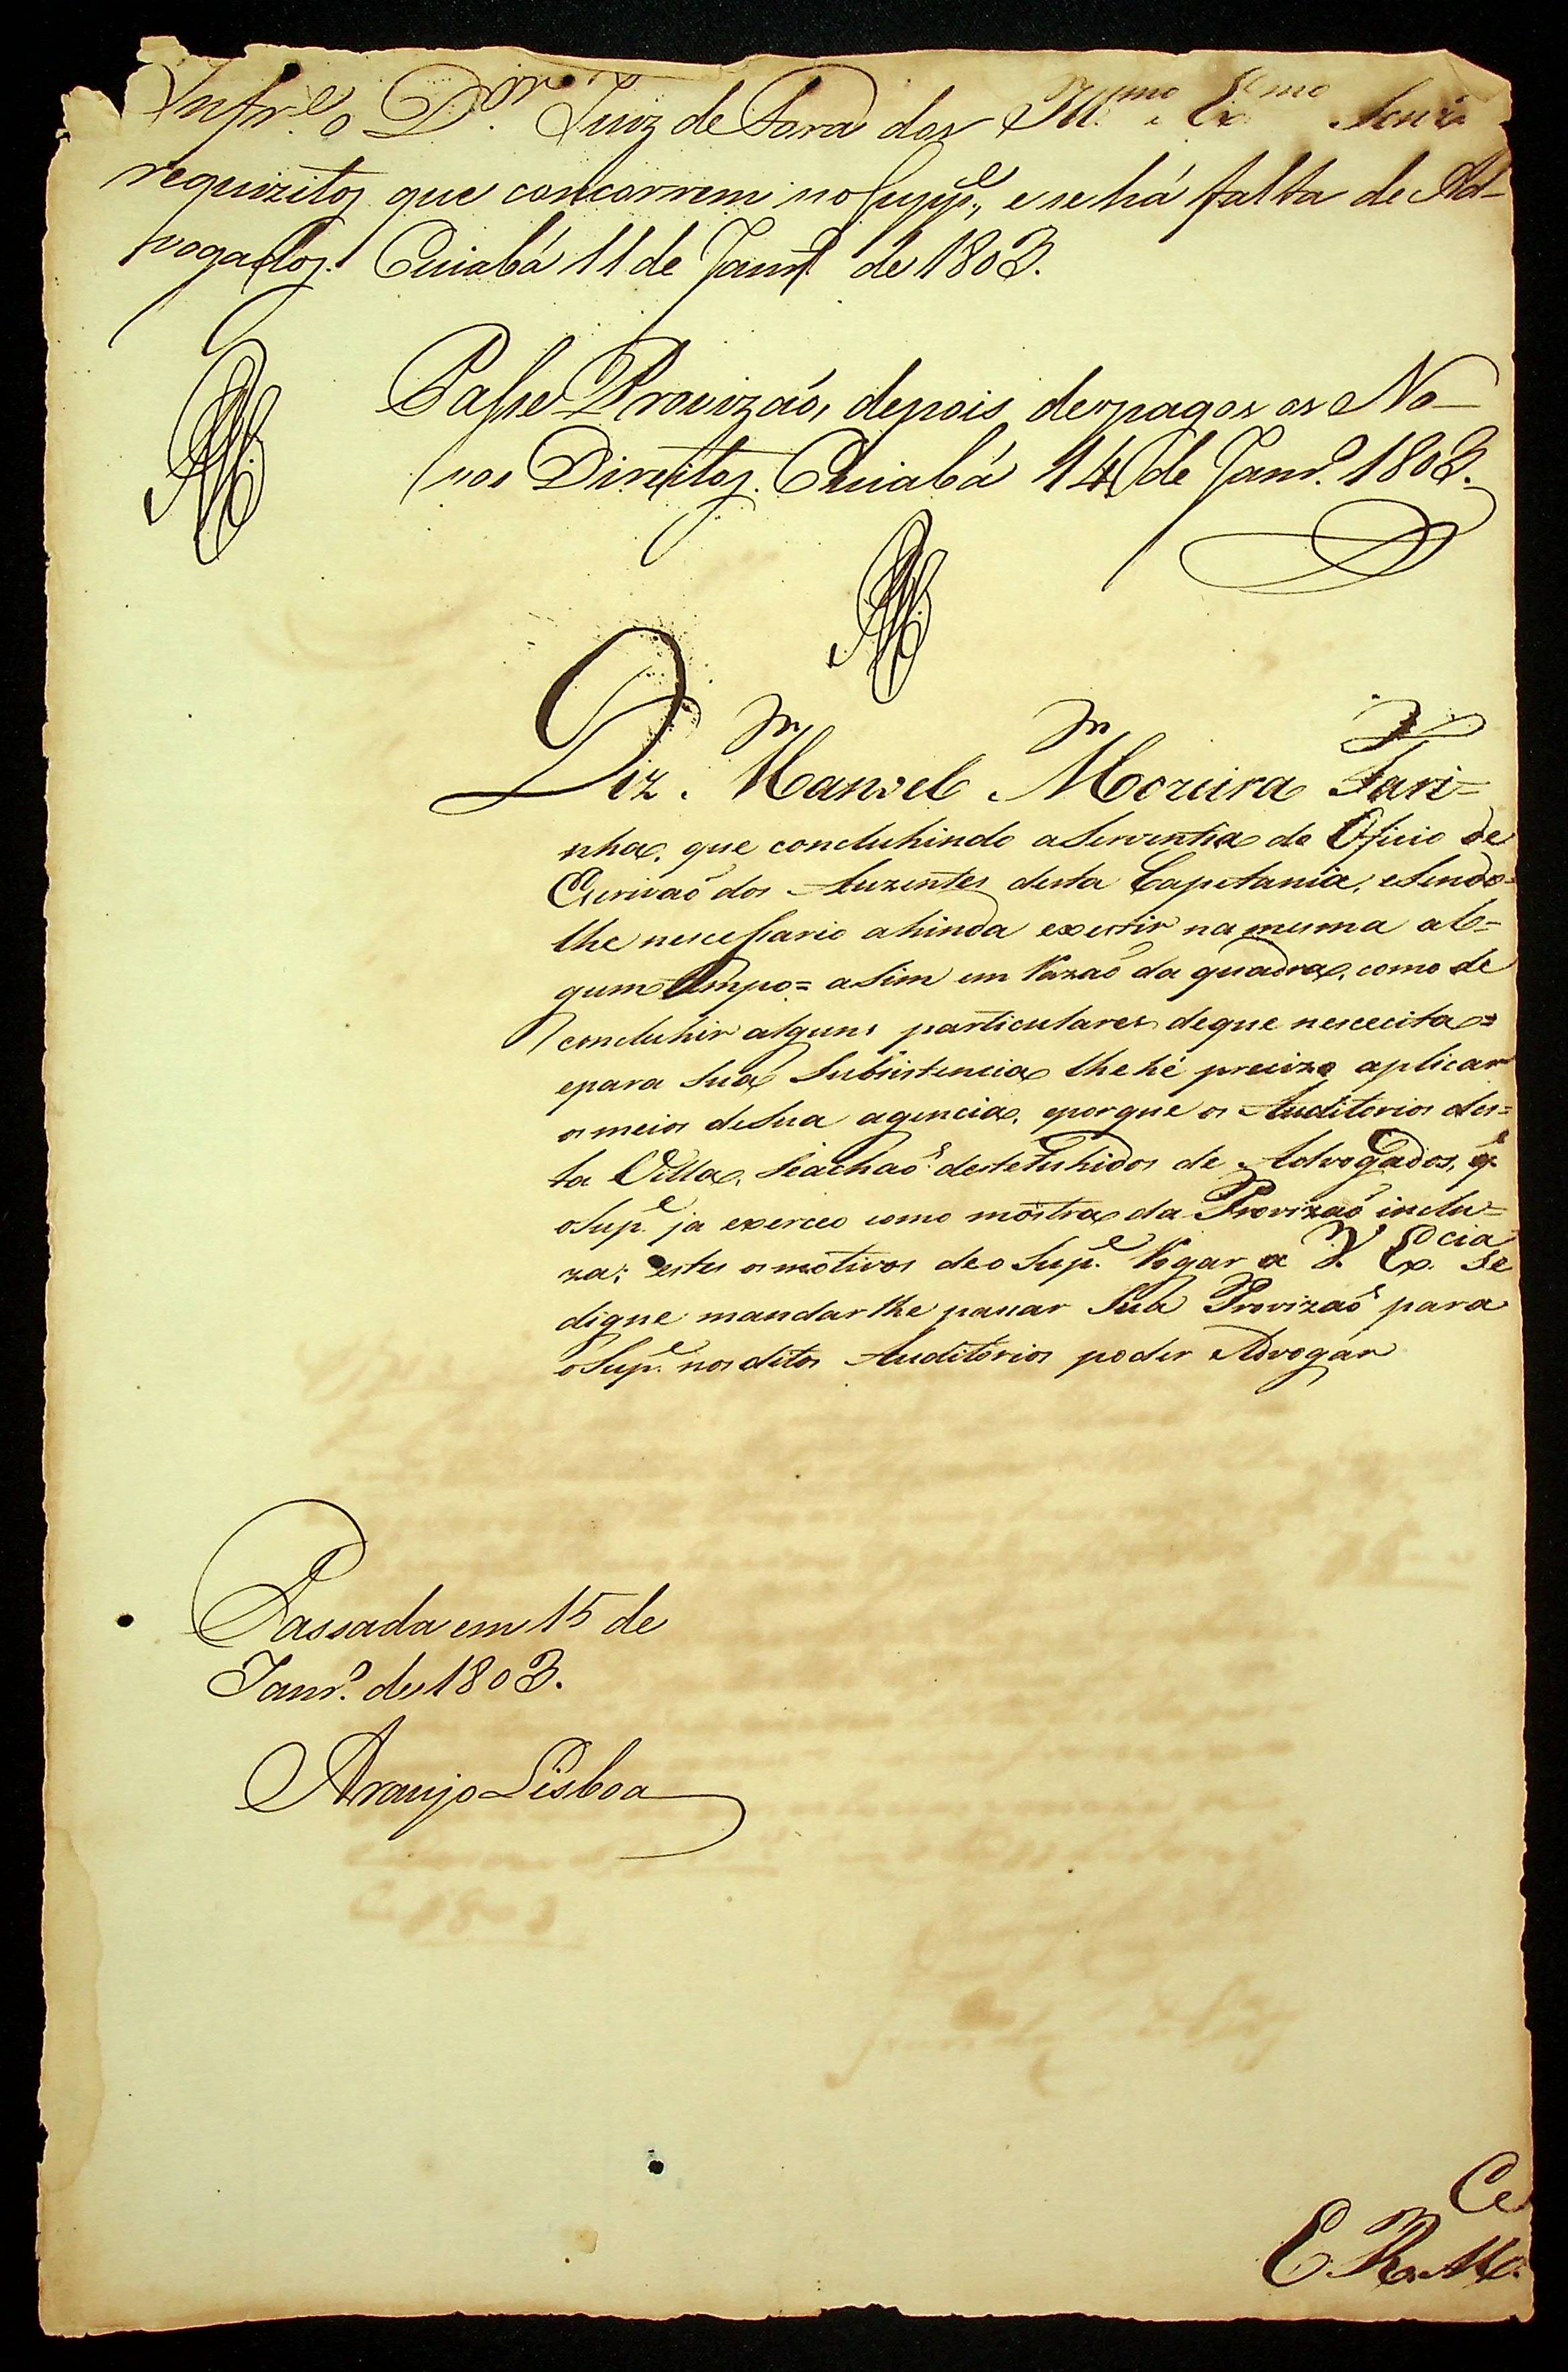 Infr.e o D.or Juiz de Fora dos Ill.mo e Ex.mo Senr.
requizitos que concorrem no Supp.e, e se há falta de Ad-
vogados. Cuiabá 11 de Janr.o de 1803.
Passe Provizaõ, depois de pagos os No-
vos Direitos. Cuiabá 14 de Janr.o 1803.
Diz Manoel Moreira Fari=
nha, que concluhindo a Serventia do Oficio de
Escrivaõ dos Auzentes desta Capetania, e Sendo=
lhe nescessario ahinda exestir na mesma al=
gum tempo= a Sim em Razaõ da quadra, como de
concluhir alguns particulares de que nescecita=
e para Sua Subsistencia lhe hé precizo aplicar
os meios de Sua agencia, e porque os Auditorios des=
ta Villa, Se achaõ destetuhidos de Advogados, q.
o Sup.e ja exerceo como mostra da Provizaõ inclu=
za; estes os motivos de o Sup.e Rogar a V. Ex.cia Se
digne mandar lhe passar Sua Provizaõ para
o Sup.e nos ditos Auditorios poder Advogar
Passada em 15 de
Janr.o de 1803.
Araujo Lisboa
E. R. M.ce